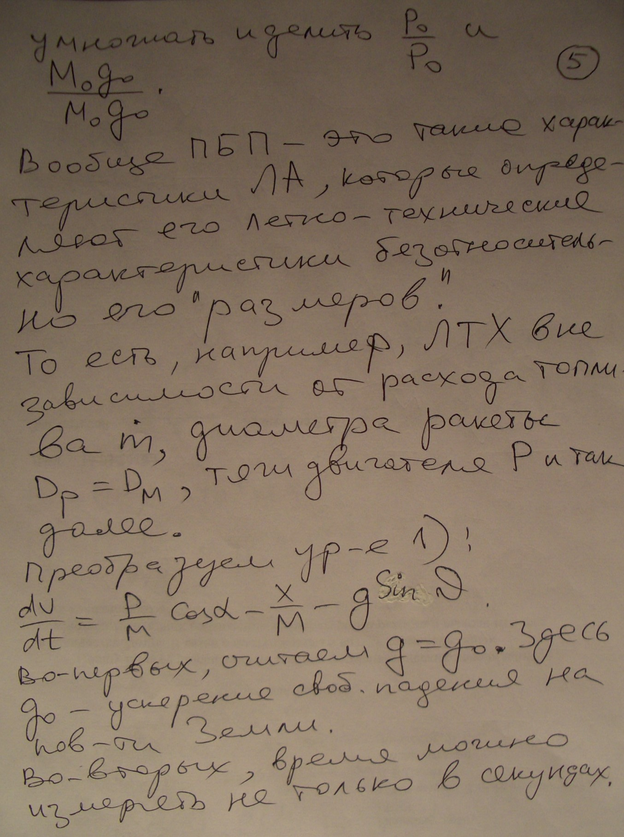 умножать и делить P₀/P₀ и
M₀g₀/M₀g₀.
5
Вообще ПБП – это такие харак-
теристики ЛА, которые опреде-
ляют его летно-технические
характеристики безотноситель-
но его "размеров".
То есть, например, ЛТХ вне
зависимости от расхода топли-
ва ṁ, диаметра ракеты
Dр = Dм, тяги двигателя P и так
далее.
Преобразуем ур-е 1):
dv/dt = P/M cosα – X/M – g sin ϑ.
Во-первых, считаем g = g₀. Здесь
g₀ – ускорение своб. падения на
пов-ти Земли.
Во-вторых, время можно
измерять не только в секундах.